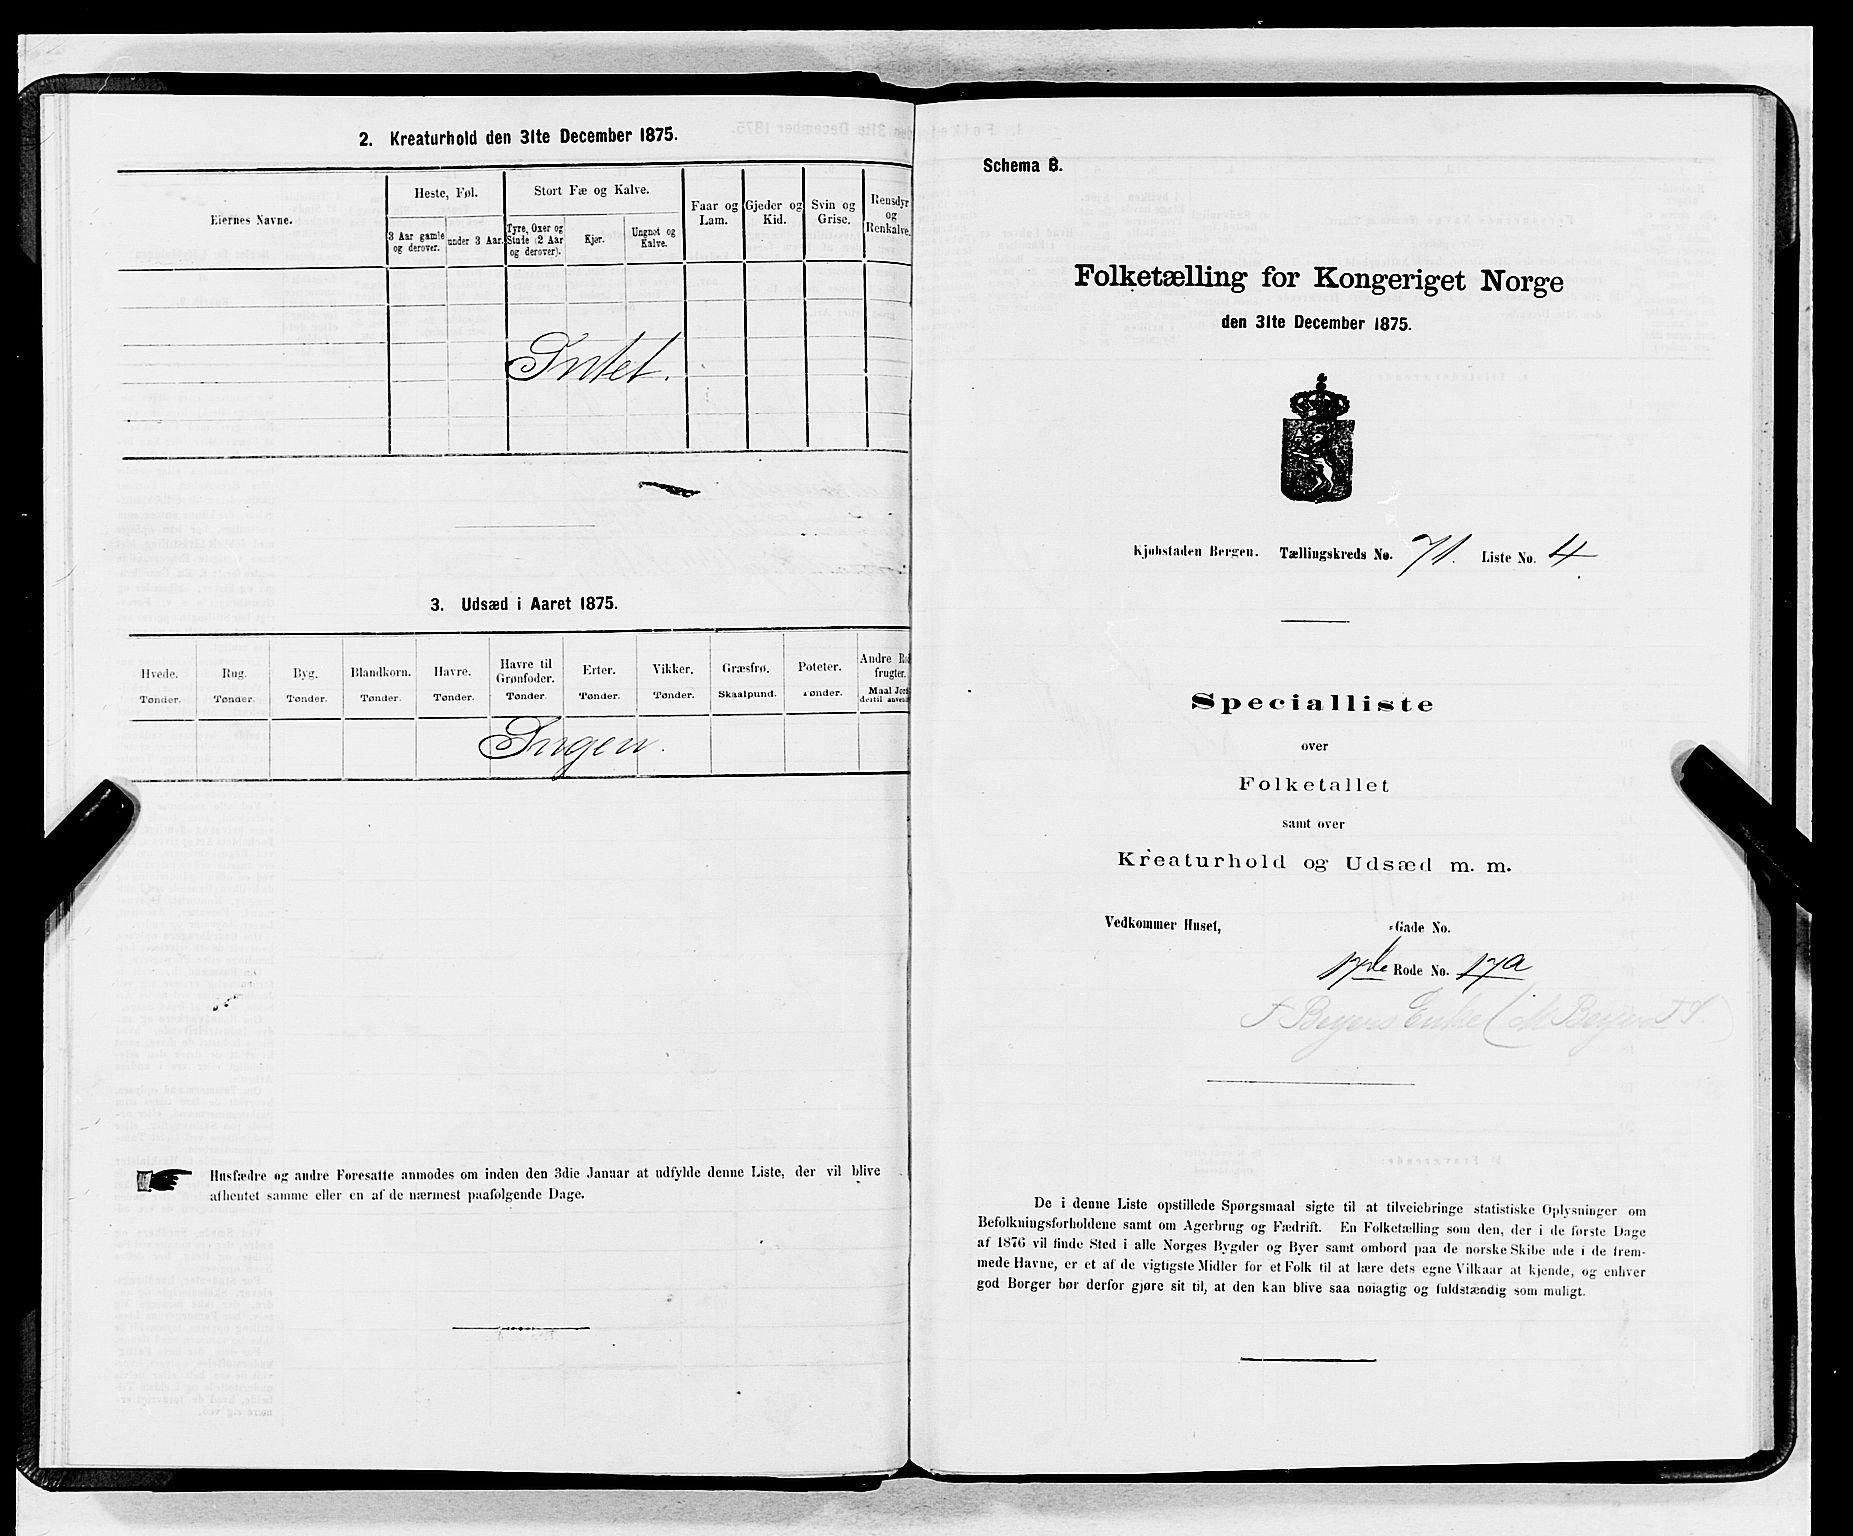 2. Kreaturhold den 31te December 1875.
Eiernes Navne.
Heste, Føl.
Stort Fæ og Kalve.
Faar og Lam.
Gjeder og Kid.
Svin og Grise.
Rensdyr og Renkalve.
3 Aar gamle og derover.
under 3 Aar.
Tyre, Oxer og Stude (2 Aar og derover).
Kjør.
Ungnøt og Kalve.
Intet.
3. Udsæd i Aaret 1875.
Hvede. Rug. Byg. Blandkorn. Havre. Havre til Grønfoder. Erter. Vikker. Græsfrø. Poteter. Andre
frugter.
Tønder. Tønder. Tønder. Tønder. Tønder. Tønder. Tønder. Tønder. Skaalpund. Tønder. Maal Jord
dertil
Ingen.
Husfædre og andre Foresatte anmodes om inden den 3die Januar at udfylde denne Liste, der vil blive
afhentet samme eller en af de nærmest paafølgende Dage.
Schema B.
Folketælling for Kongeriget Norge
den 31te December 1875.
Kjøbstaden Bergen. Tællingskreds No. 71. Liste No. 4.
Specialliste
over
Folketallet
samt over
Kreaturhold og Udsæd m. m.
Vedkommer Huset, -Gade No.
17de Rode No. 17a
Beyers Enke (M Beyer
De i denne Liste opstillede Spørgsmaal sigte til at tilveiebringe statistiske Oplysninger om
Befolkningsforholdene samt om Agerbrug og Fædrift. En Folketælling som den, der i de første Dage
af 1876 vil finde Sted i alle Norges Bygder og Byer samt ombord paa de norske Skibe ude i de frem-
mede Havne, er et af de vigtigste Midler for et Folk til at lære dets egne Vilkaar at kjende, og enhver
god Borger bør derfor gjøre sit til, at den kan blive saa nøiagtig og fuldstændig som muligt.